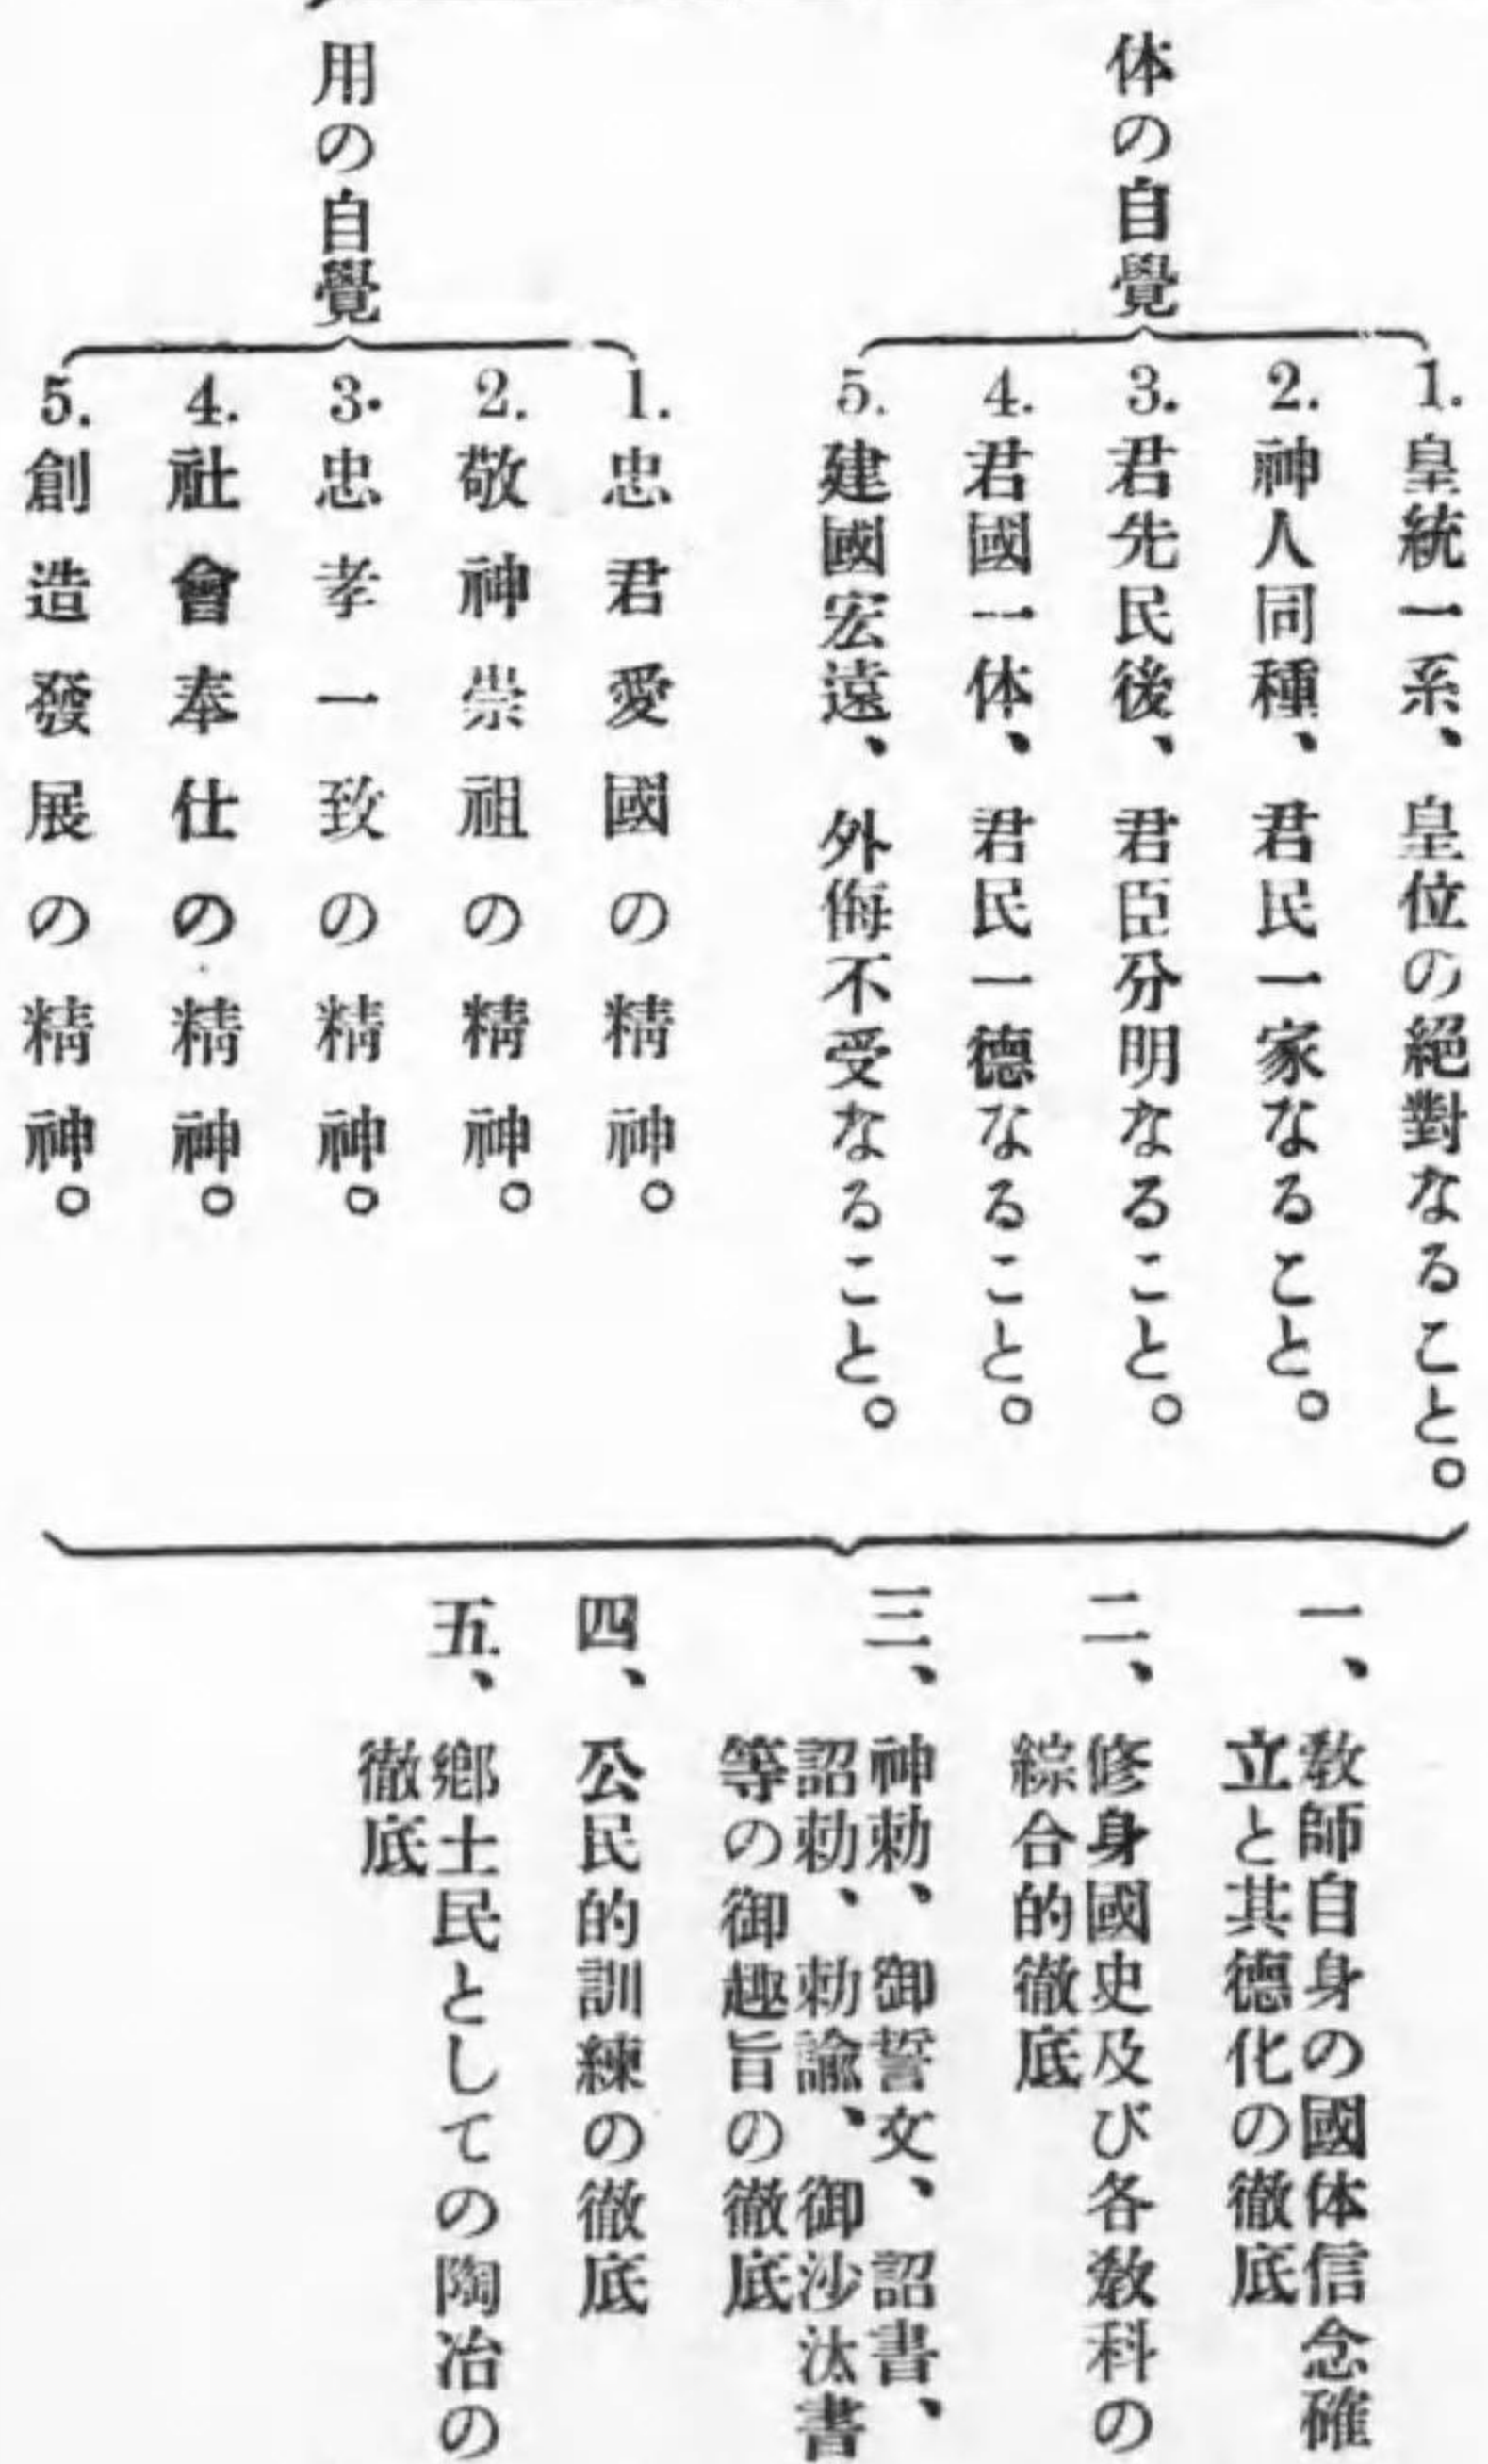 体の自覺
1. 皇統一系、皇位の絕對なること。
2. 神人同種、君民一家なること。
3. 君先民後、君臣分明なること。
4. 君國一体、君民一德なること。
5. 建國宏遠、外侮不受なること。
用の自覺
1. 忠君愛國の精神。
2. 敬神崇祖の精神。
3. 忠孝一致の精神。
4. 社會奉仕の精神。
5. 創造發展の精神。
一、敎師自身の國体信念確
立と其德化の徹底
二、修身國史及び各敎科の
綜合的徹底
三、神勅、御誓文、詔書、
詔勅、勅諭、御沙汰書
等の御趣旨の徹底
四、公民的訓練の徹底
五、鄕土民としての陶冶の
徹底